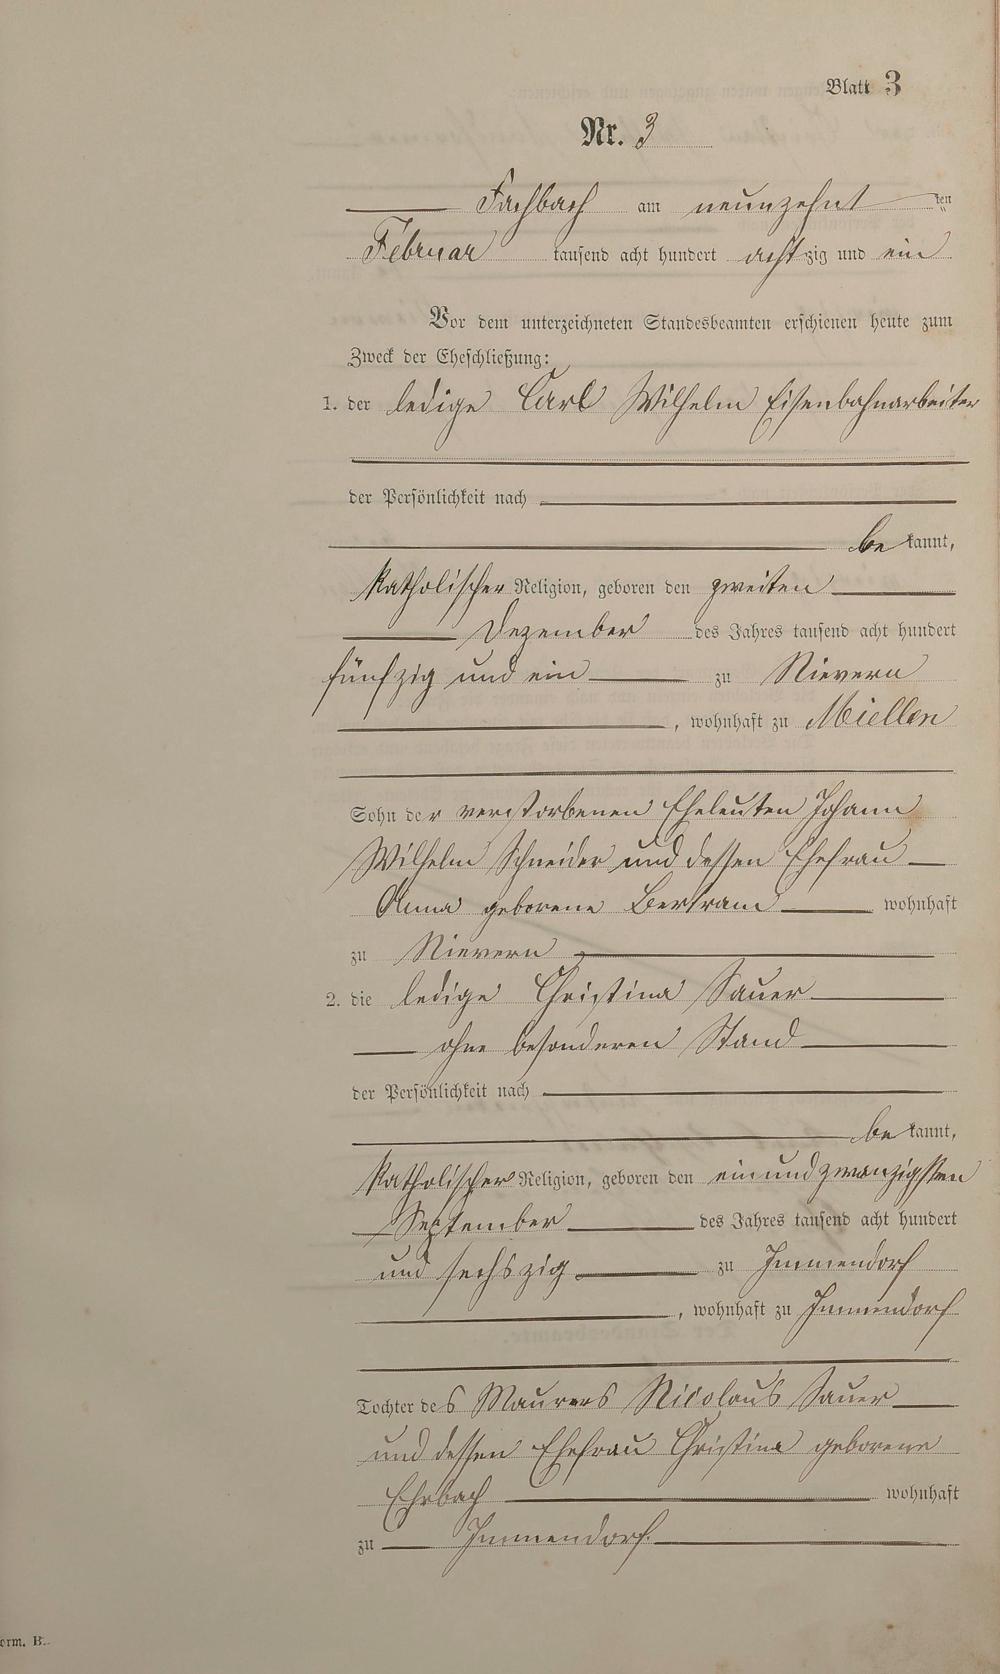 Blatt 3
Nr. 3
Fachbach am neunzehnt ten
Februar tausend acht hundert achtzig und ein
Vor dem unterzeichneten Standesbeamten erschienen heute zum
Zweck der Eheschließung:
1. der ledige Carl Wilhelm Eisenbahnarbeiter
der Persönlichkeit nach
be kannt,
katholischer Religion, geboren den zweiten
Dezember des Jahres tausend acht hundert
fünfzig und ein zu Nievern
, wohnhaft zu Miellen
Sohn der verstorbenen Eheleuten Johann
Wilhelm Schneider und dessen Ehefrau
Anna geborene Bertram wohnhaft
zu Nievern
2. die ledige Christina Sauer
ohne besonderen Stand
der Persönlichkeit nach
be kannt,
katholischer Religion, geboren den einundzwanzigsten
September des Jahres tausend acht hundert
und sechszig zu Immendorf
, wohnhaft zu Immendorf
Tochter des Maurers Nicolaus Sauer
und dessen Ehefrau Christina geborene
Ehrbach wohnhaft
zu Immendorf.
orm. B.